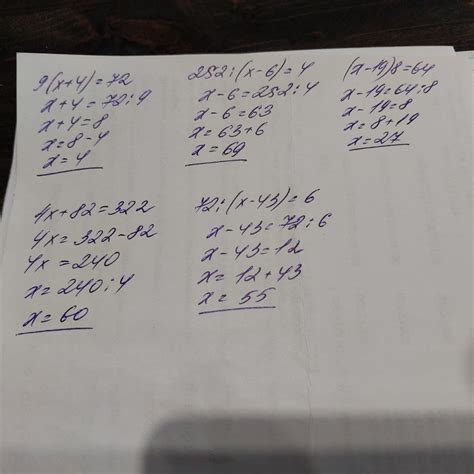 9(x+4)=72
x+4=72:9
x+4=8
x=8-4
x=4
252:(x-6)=4
x-6=252:4
x-6=63
x=63+6
x=69
(x-19)8=64
x-19=64:8
x-19=8
x=8+19
x=27
4x+82=322
4x=322-82
4x=240
x=240:4
x=60
72:(x-43)=6
x-43=72:6
x-43=12
x=12+43
x=55